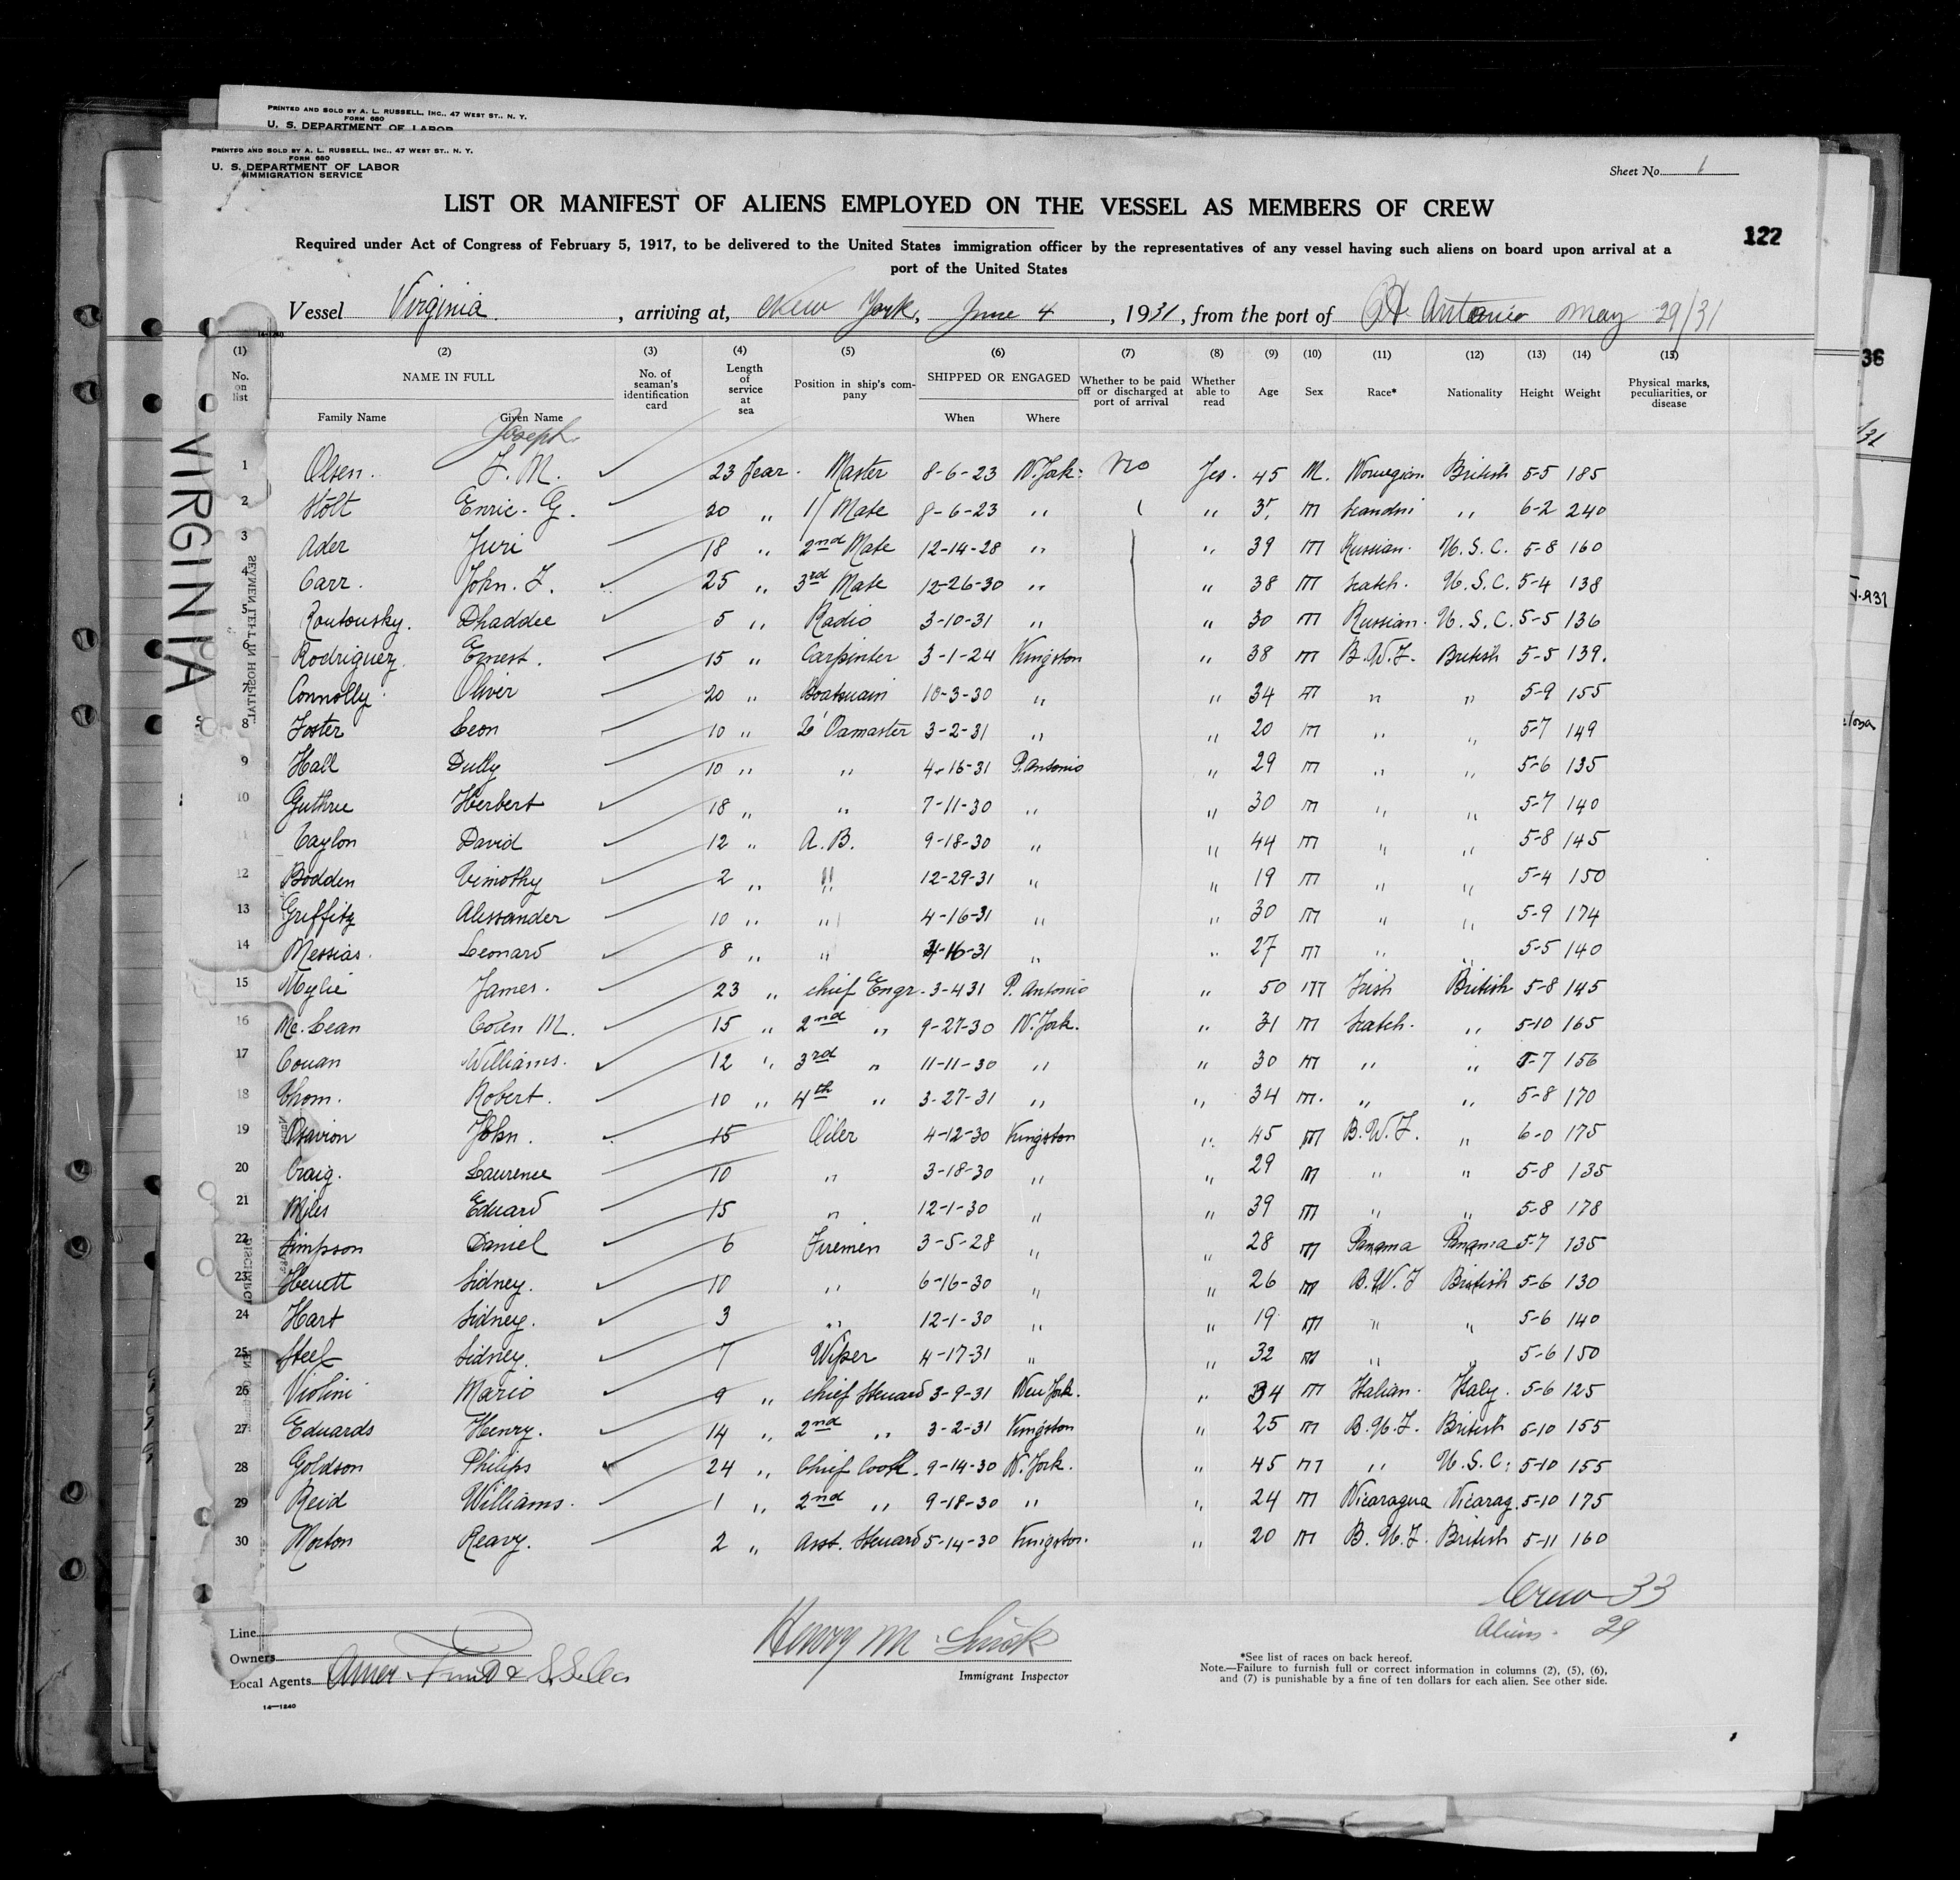 PRINTED AND SOLD BY A. L. RUSSELL, INC., 47 WEST ST., N. Y.
FORM 680
U. S. DEPARTMENT OF LABOR
PRINTED AND SOLD BY A. L. RUSSELL, INC., 47 WEST ST., N. Y.
FORM 680
U. S. DEPARTMENT OF LABOR
IMMIGRATION SERVICE
Sheet No. 1
LIST OR MANIFEST OF ALIENS EMPLOYED ON THE VESSEL AS MEMBERS OF CREW
122
Required under Act of Congress of February 5, 1917, to be delivered to the United States immigration officer by the representatives of any vessel having such aliens on board upon arrival at a
port of the United States
Vessel Virginia, arriving at, New York, June 4, 1931, from the port of Pt Antonio May 29/31
(1) (2) (3) (4) (5) (6) (7) (8) (9) (10) (11) (12) (13) (14) (15)
No. on list NAME IN FULL No. of seaman's identification card Length of service at sea Position in ship's company SHIPPED OR ENGAGED Whether to be paid off or discharged at port of arrival Whether able to read Age Sex Race* Nationality Height Weight Physical marks, peculiarities, or disease
Family Name Given Name When Where
Joseph
1 Olsen. J. M. 23 Year. Master 8-6-23 N. York. No Yes. 45 M. Norwegian. British 5-5 185
2 Stolt Enric. G. 20 " 1/ Mate 8-6-23 " " m Scandni " 6-2 240
3 Ader Juri 18 " 2nd Mate 12-14-28 " " 39 m Russian. U. S. C. 5-8 160
4 Carr. John. J. 25 " 3rd Mate 12-26-30 " " 38 m Scatch. U. S. C. 5-4 138
5 Routousky. Dhaddee 5 " Radio 3-10-31 " " 30 m Russian. U. S. C. 5-5 136
6 Rodriguez Ernest. 15 " Carpinter 3-1-24 Kingston " 38 m B. W. I. British 5-5 139.
7 Connolly. Oliver 20 " Boatsuain 10-3-30 " " 34 m " " 5-9 155
8 Foster Leon 10 " 3-2-31 " " 20 m " " 5-7 149
9 Hall Dully 10 " " 4-16-31 P. Antonio " 29 m " " 5-6 135
10 Guthrie Herbert 18 " " 7-11-30 " " 30 m " " 5-7 140
11 Taylon David 12 " A. B. 9-18-30 " " 44 m " " 5-8 145
12 Bodden Timothy 2 " " 12-29-31 " " 19 m " " 5-4 150
13 Griffitz Alessander 10 " " 4-16-31 " " 30 m " " 5-9 174
14 Messias. Leonard 8 " " 4-16-31 " " 27 m " " 5-5 140
15 Mylie James. 23 " chief Engr. 3-4 31 P. Antonio " 50 m Irish British 5-8 145
16 Mc. Lean Colin M. 15 " 2nd " 9-27-30 N. York. " 31 m Scatch. " 5-10 165
17 Couan Williams. 12 " 3rd " 11-11-30 " " 30 m " " 5-7 156
18 Thom. Robert. 10 " 4th " 3-27-31 " " 34 m. " " 5-8 170
19 John. 15 Oiler 4-12-30 Kingston " 45 m B. W. I. " 6-0 175
20 Craig. Laurence 10 " 3-18-30 " " 29 m " " 5-8 135
21 Miles Eduard 15 " 12-1-30 " " 39 m " " 5-8 178
22 Simpson Daniel 6 Firemen 3-5-28 " " 28 m Panama Panama 5-7 135
23 Heuett Sidney. 10 " 6-16-30 " " 26 m B. W. I British 5-6 130
24 Hart Sidney. 3 " 12-1-30 " " 19 m " " 5-6 140
25 Steel Sidney. 7 Wiper 4-17-31 " " 32 m " " 5-6 150
26 Violini Mario 9 " chief Steuard 3-9-31 New York. " 34 m Italian. Italy. 5-6 125
27 Eduards Henry. 14 " 2nd " 3-2-31 Kingston " 25 m B. W. I. British 5-10 155
28 Goldson Philips 24 " Chief Cook. 9-14-30 N. York. " 45 m " U. S. C. 5-10 155
29 Reid Williams. 1 " 2nd " 9-18-30 " " 24 m Nicaragua Nicarag. 5-10 175
30 Morton Reavy. 2 " Asst. Steuard 5-14-30 Kingston. " 20 m B. W. I. British 5-11 160
VIRGINIA
Crew 33
Aliens. 29
Line
Owners
Local Agents
Henry M.
Immigrant Inspector
*See list of races on back hereof.
Note.—Failure to furnish full or correct information in columns (2), (5), (6),
and (7) is punishable by a fine of ten dollars for each alien. See other side.
14—1240
36